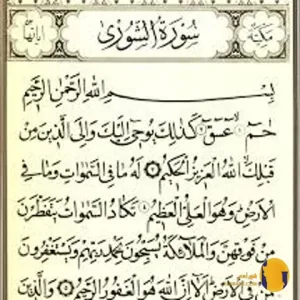 سُورَةُ الشُّورَىٰ
بِسْمِ اللَّهِ الرَّحْمَٰنِ الرَّحِيمِ
حمٓ عٓسٓقٓ كَذَٰلِكَ يُوحِي إِلَيْكَ وَإِلَى الَّذِينَ مِن
قَبْلِكَ اللَّهُ الْعَزِيزُ الْحَكِيمُ لَهُ مَا فِي السَّمَٰوَاتِ وَمَا فِي
الْأَرْضِ وَهُوَ الْعَلِيُّ الْعَظِيمُ تَكَادُ السَّمَٰوَاتُ يَتَفَطَّرْنَ
مِن فَوْقِهِنَّ وَالْمَلَائِكَةُ يُسَبِّحُونَ بِحَمْدِ رَبِّهِمْ وَيَسْتَغْفِرُونَ
لِمَن فِي الْأَرْضِ أَلَا إِنَّ اللَّهَ هُوَ الْغَفُورُ الرَّحِيمُ وَالَّذِينَ